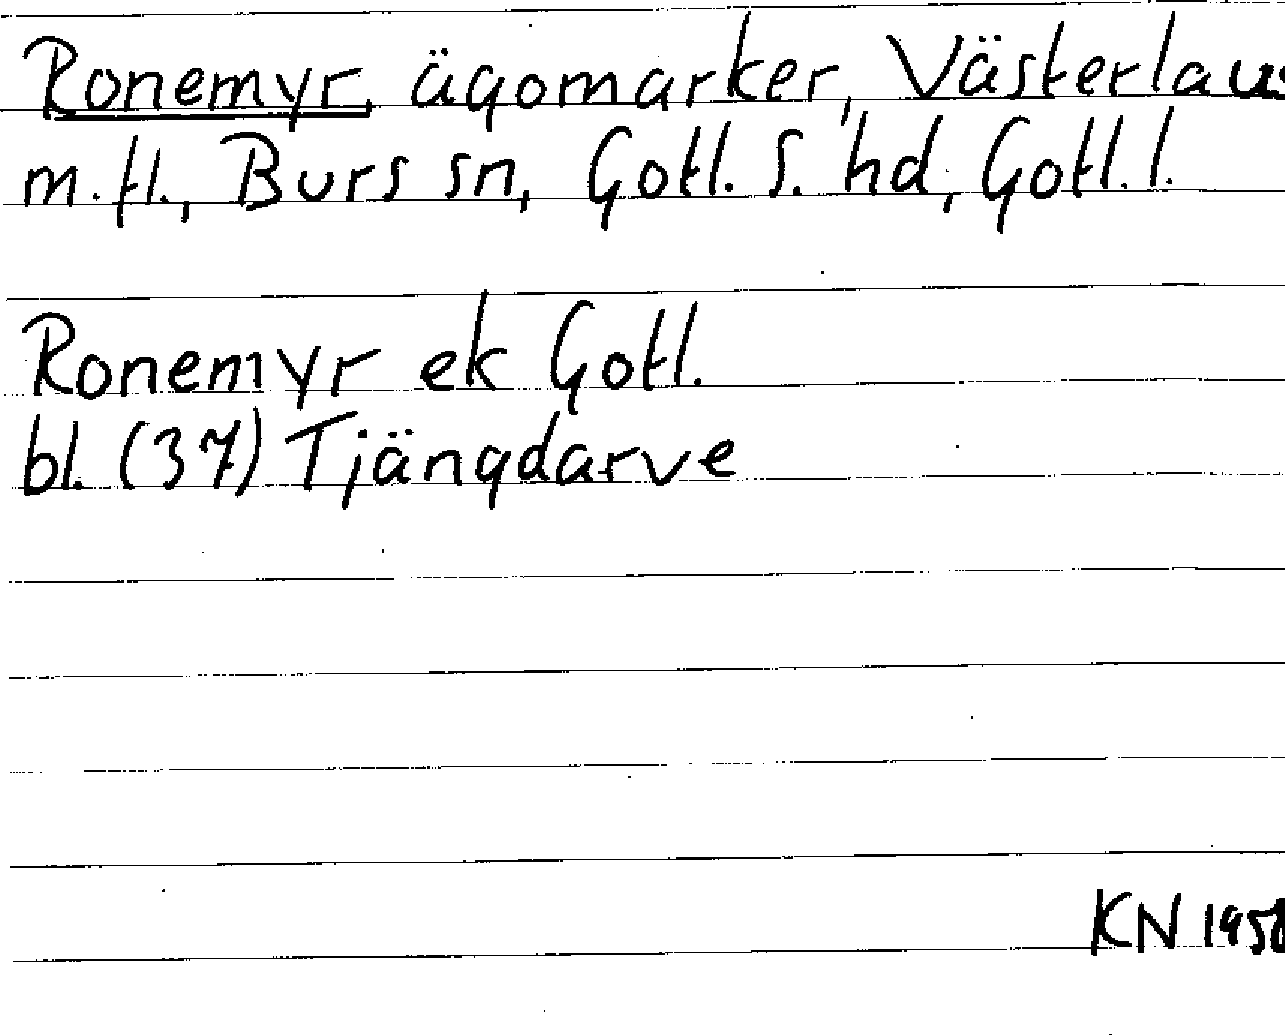 Ronemyr, ägomarker, Västerlaus
m.fl., Burs sn, Gotl. S. hd, Gotl. l.
Ronemyr ek Gotl.
bl. (37) Tjängdarve
KN 1958